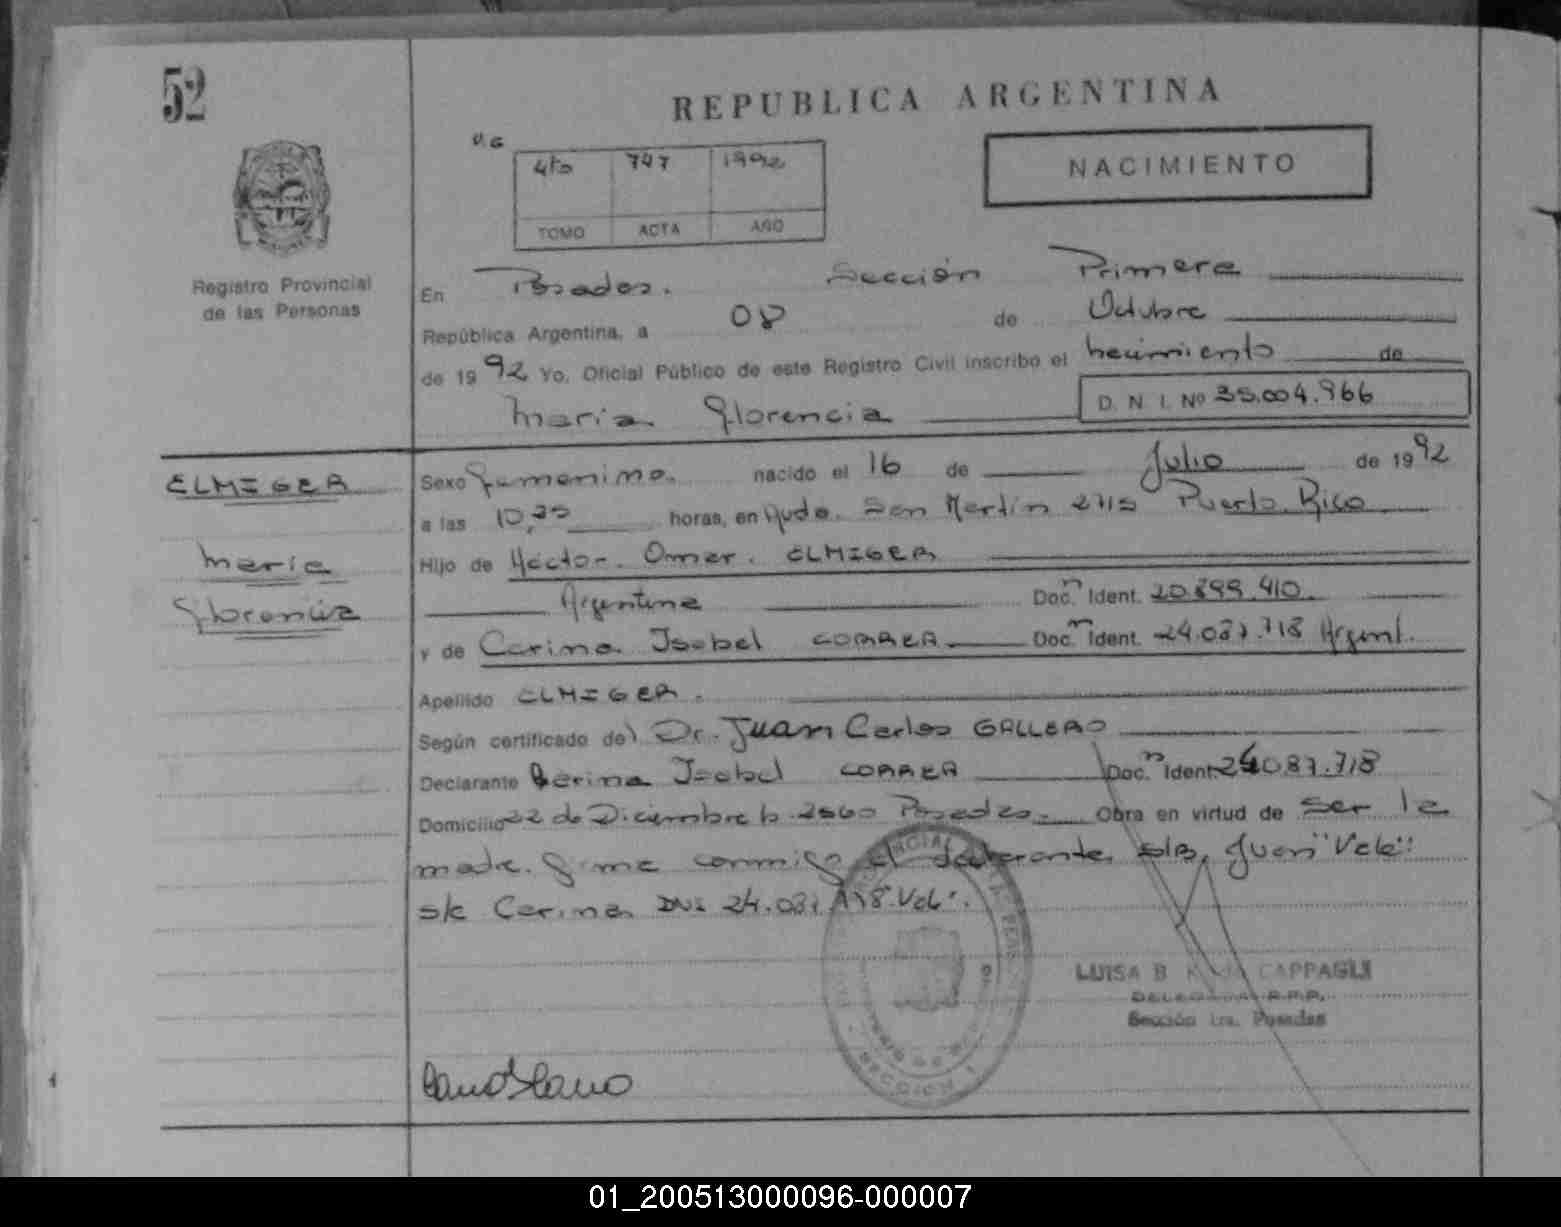 52
REPUBLICA ARGENTINA
NACIMIENTO
4to 747 1992
TOMO ACTA AÑO
Registro Provincial
de las Personas
En Posadas. Sección Primera
República Argentina, a 08 de Octubre
de 1992 Yo, Oficial Público de este Registro Civil inscribo el nacimiento de
María Florencia D. N. I. Nº
ELMIGER
María
Florencia
Sexo Femenino. nacido el 16 de Julio de 1992
a las horas, en Avda. San Martín 2715 Puerto Rico
Hijo de Héctor Omar. ELMIGER
Argentina Doc. Ident. 20.899.410.
y de Carina Isabel CORREA Doc. Ident. 24.087.718 Argent.
Apellido ELMIGER.
Según certificado del Dr. Juan Carlos GALLERO
Declarante Carina Isabel CORREA Doc. Ident. 24087.718
Domicilio 22 de Diciembre b. 2560 Posadas. Obra en virtud de ser la
madre. Firma conmigo el declarante. s/b, Juan "Vale".
s/c Carina DNI 24.087.718 "Vale".
LUISA B CAPPAGLI
R.P.P.
Sección 1ra. Posadas
SECCION 1
01_200513000096-000007